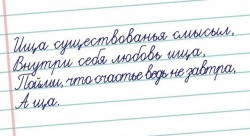 Ища существованья смысл,
Внутри себя любовь ища,
Пойми, что счастье ведь не завтра,
А ща.